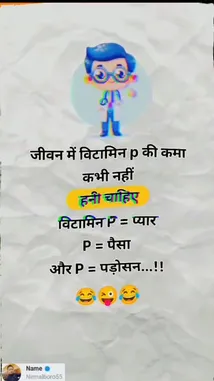 जीवन में विटामिन p की कमा
कभी नहीं
हनी चाहिए
विटामिन P = प्यार
P = पैसा
और P = पड़ोसन...!!
😂😜😂
Name
Nirmalboro55